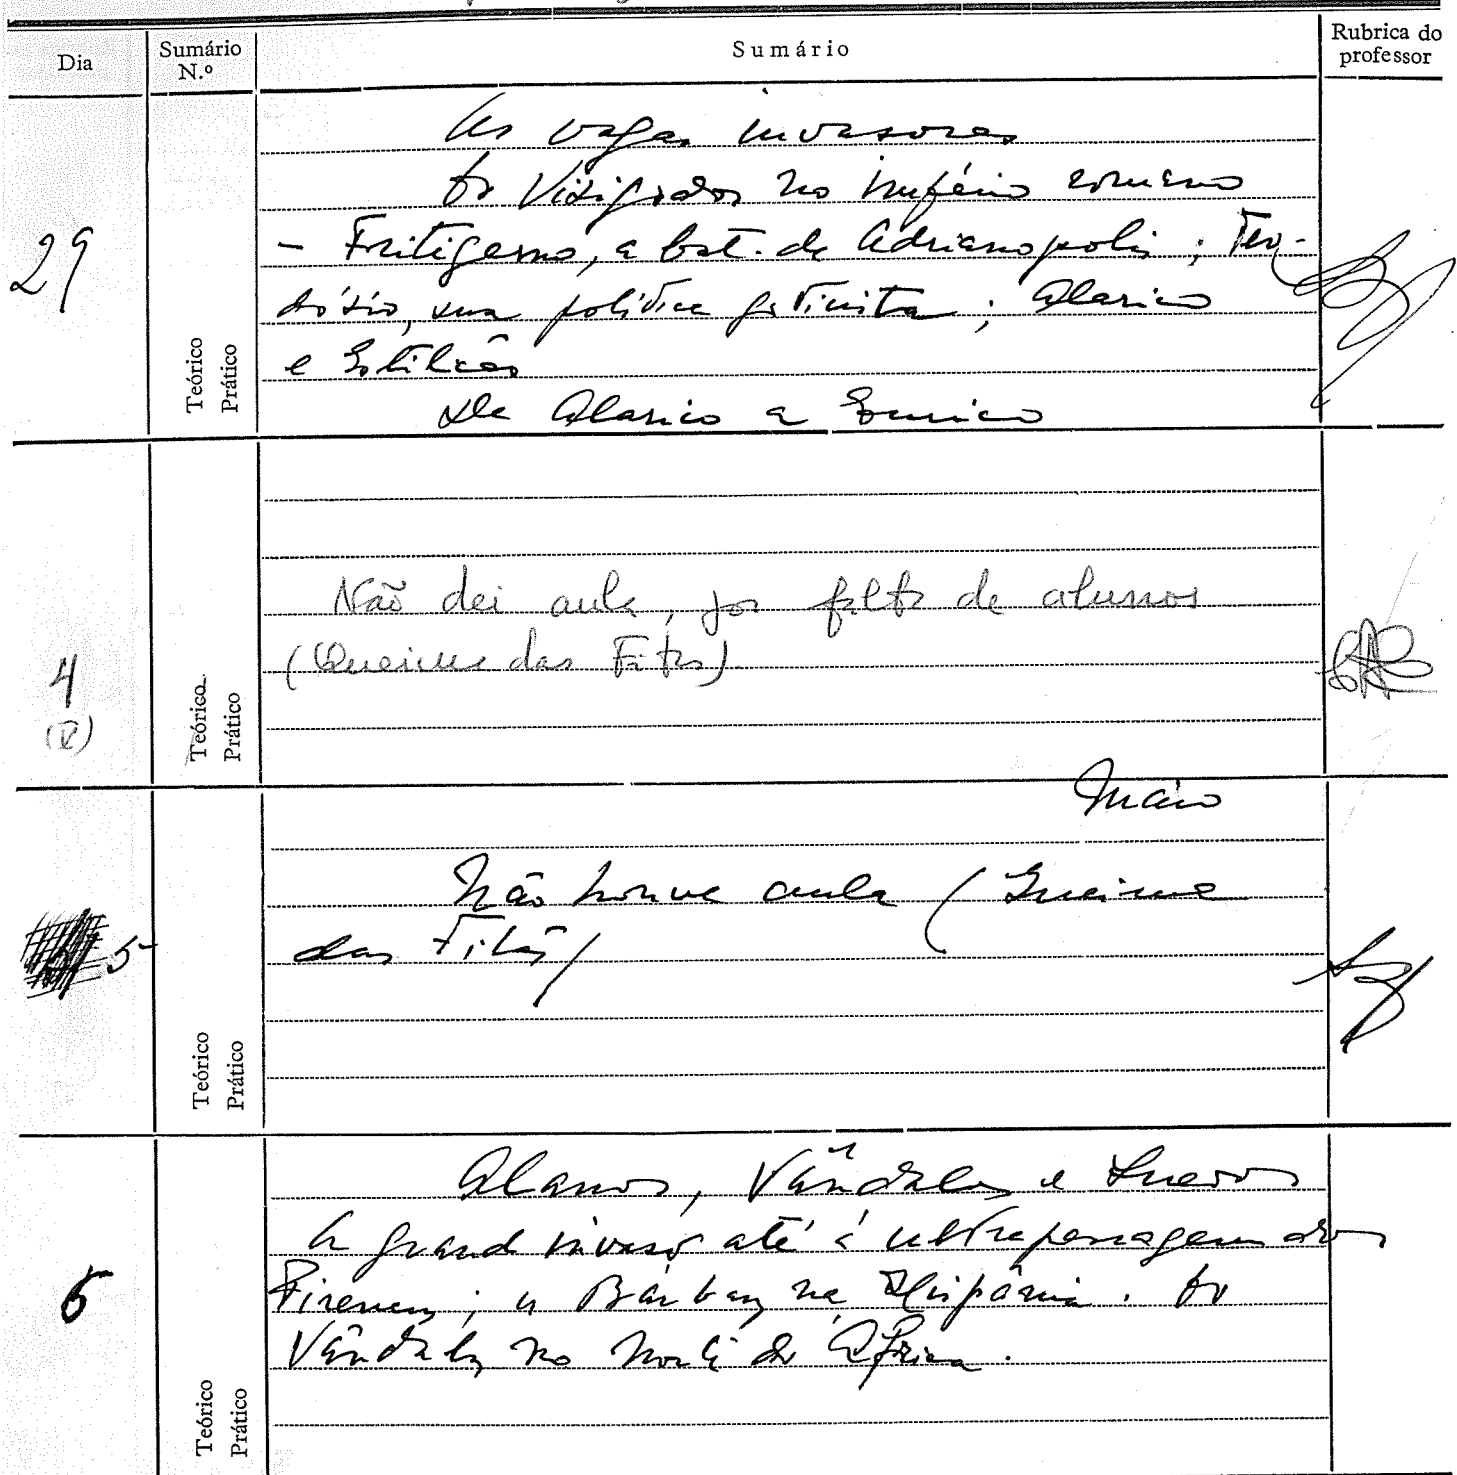 Dia
Sumário N.º
Sumário
Rubrica do professor
29
Teórico
Prático
As vagas invasoras
Os Visigodos no império romano
- Fritigerno, a bat. de Adrianopolis; Teo-
dósio, sua política goticista; Alarico
e Estilicão
De Alarico a Eurico
4
(V)
Teórico
Prático
Não dei aula, por falta de alunos
(Queima das Fitas)
Maio
5
Teórico
Prático
Não houve aula (Queima
das Fitas)
6
Teórico
Prático
Alanos, Vândalos e Suevos
A grande invasão até à ultrapassagem dos
Pirenéus; os Bárbaros na Hispânia. Os
Vândalos no Norte de África.